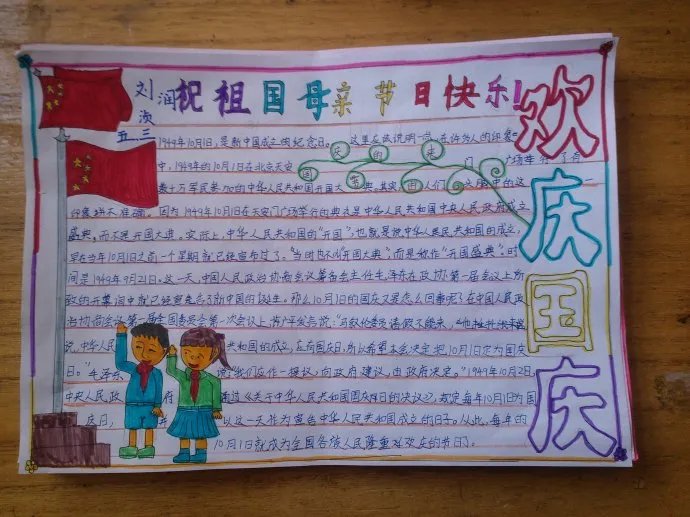 祝祖国母亲节日快乐!
欢庆国庆
刘润
五三
国庆的由来
1949年10月1日,是新中国成立的纪念日。这里应该说明一点,在许多人的印象
中,1949年的10月1日在北京天安门广场举行了有
数十万军民参加的中华人民共和国开国大典,其实,人们的这一
印象并不准确。因为1949年10月1日在天安门广场举行的典礼是中华人民共和国中央人民政府成立
盛典,而不是开国大典。实际上,中华人民共和国的"开国",也就是说中华人民共和国的成立,
早在当年10月1日之前一个星期就已经宣布过了。"当时也不叫"开国大典",而是称作"开国盛典"。时
间是1949年9月21日。这一天,中国人民政治协商会议筹备会主任毛泽东在政协第一届会议上所
致的开幕词中就已经宣告了新中国的诞生。那么10月1日的国庆又是怎么回事呢?在中国人民政
治协商会议第一届全国委员会第一次会议上,许广平发言说:"马叙伦委员请假不能来,"他
说,中华人民共和国的成立,应有国庆日,所以希望本会决定把10月1日定为国庆
日。"毛泽东说"我们应作一提议,向政府建议,由政府决定。"1949年10月2日,
中央人民政府通过《关于中华人民共和国国庆日的决议》,规定每年10月1日为国
庆日,以这一天作为宣告中华人民共和国成立的日子。从此,每年的
10月1日就成为全国各族人民隆重欢庆的节日了。